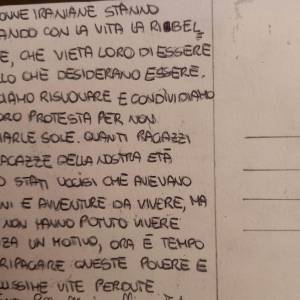 ONNE IRANIANE STANNO
ANDO CON LA VITA LA RIBEL
E, CHE VIETA LORO DI ESSERE
LLO CHE DESIDERANO ESSERE.
CIAMO RISUONARE E CONDIVIDIAMO
ORO PROTESTA PER NON
IARLE SOLE. QUANTI RAGAZZI
AGAZZE DELLA NOSTRA ETÀ
O STATI UCCISI CHE AVEVANO
NI E AVVENTURE DA VIVERE, MA
NON HANNO POTUTO VIVERE
ZA UN MOTIVO, ORA È TEMPO
RIPAGARE QUESTE POVERE E
LISSIME VITE PERDUTE